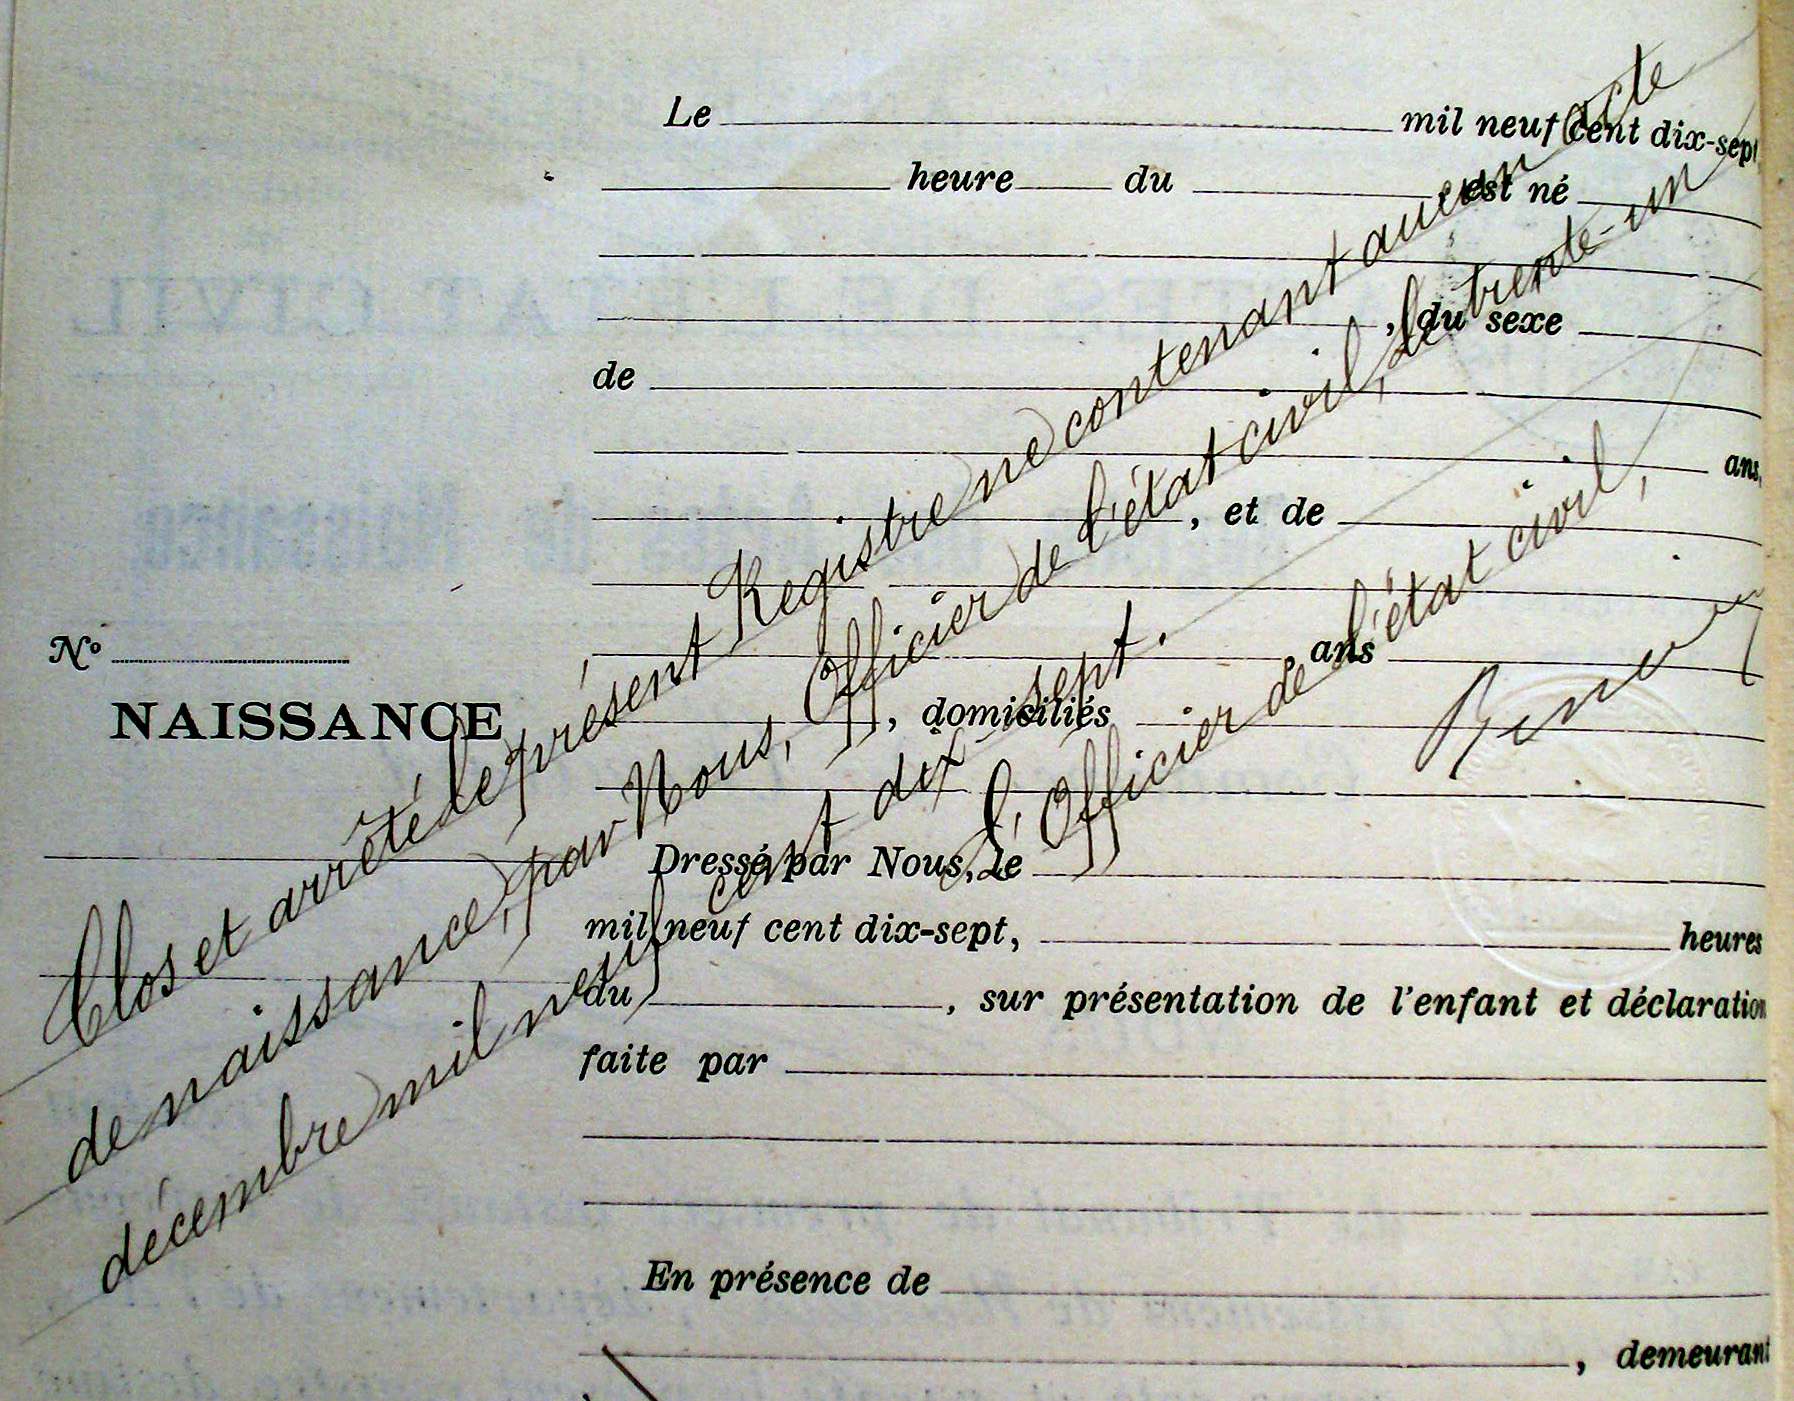 Le mil neuf cent dix-sept
heure du est né
, du sexe
de
ans,
, et de
ans
, domiciliés
N°
NAISSANCE
Dressé par Nous, le
mil neuf cent dix-sept, heures
du , sur présentation de l'enfant et déclaration
faite par
En présence de
, demeurant
Clos et arrêté le présent Registre ne contenant aucun acte
de naissance, par Nous, Officier de l'état civil, le trente-un
décembre mil neuf cent dix-sept.
L'Officier de l'état civil,